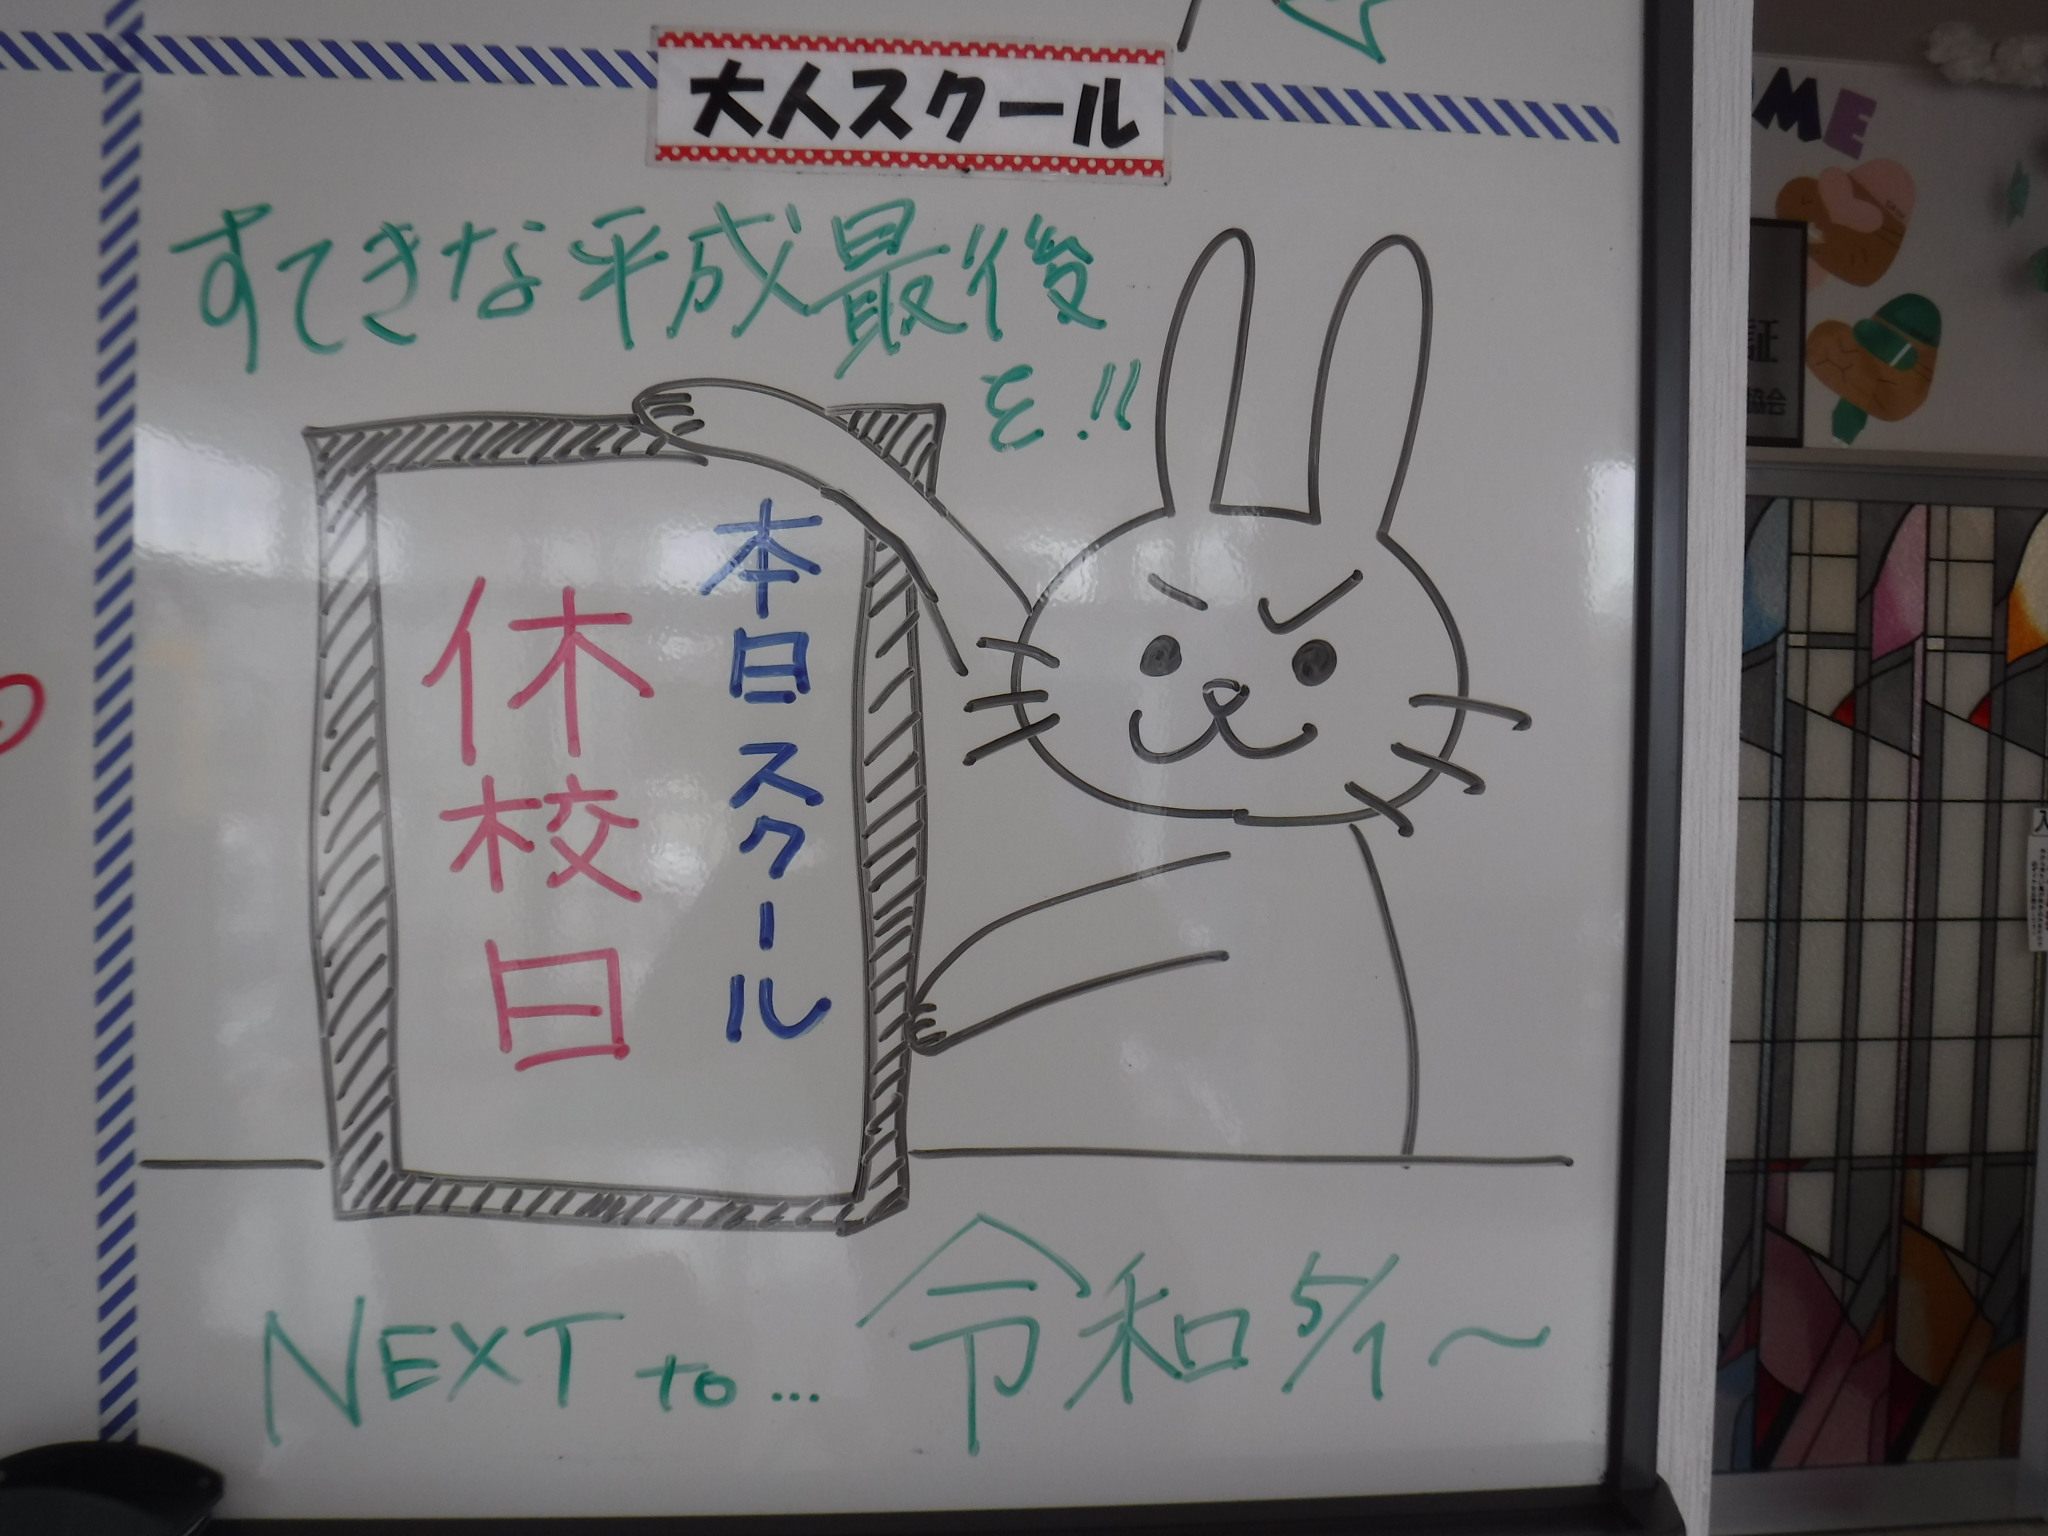 大人スクール
すてきな平成最後
を!!
本日スクール
休校日
NEXT to... 令和 5/1~
ME
証
協会
入